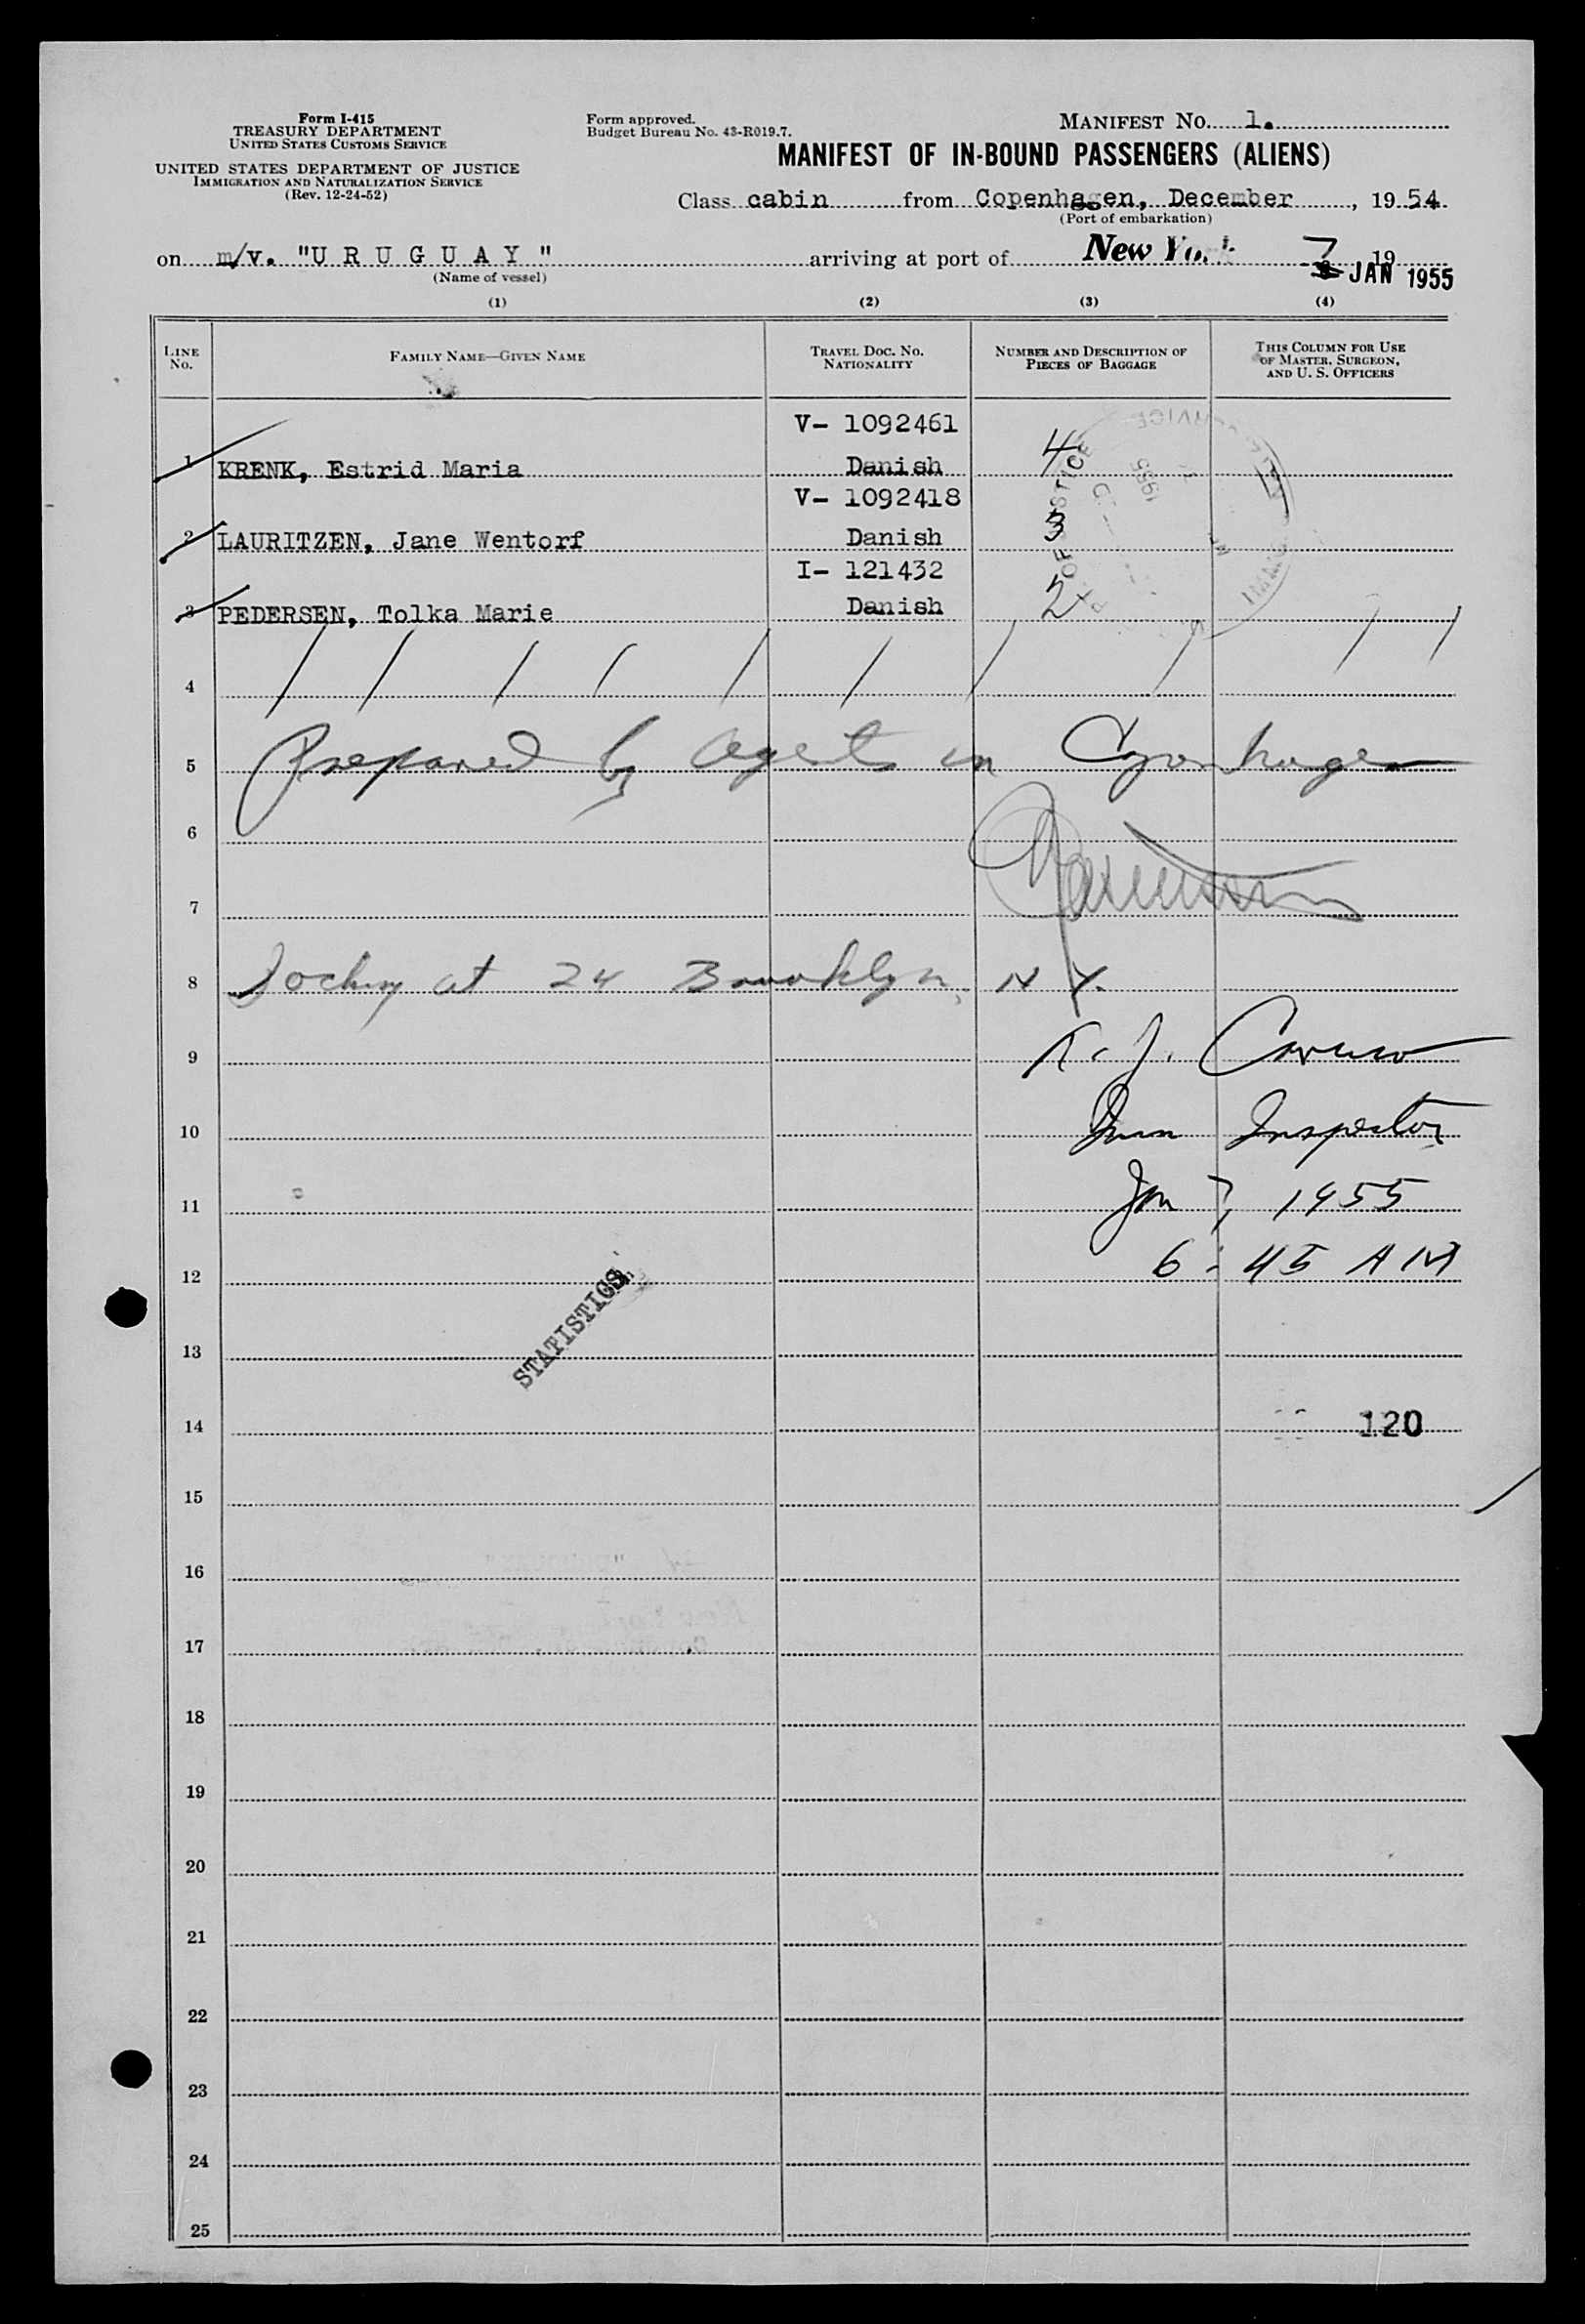 Form I-415
TREASURY DEPARTMENT
UNITED STATES CUSTOMS SERVICE
UNITED STATES DEPARTMENT OF JUSTICE
IMMIGRATION AND NATURALIZATION SERVICE
(Rev. 12-24-52)
Form approved.
Budget Bureau No. 43-R019.7.
MANIFEST NO. 1.
MANIFEST OF IN-BOUND PASSENGERS (ALIENS)
Class cabin from Copenhagen, December, 1954.
(Port of embarkation)
on m/v. "U R U G U A Y" arriving at port of New York 7 19
(Name of vessel)
JAN 1955
(1) (2) (3) (4)
LINE NO.
FAMILY NAME—GIVEN NAME
TRAVEL DOC. NO. NATIONALITY
NUMBER AND DESCRIPTION OF PIECES OF BAGGAGE
THIS COLUMN FOR USE OF MASTER, SURGEON, AND U. S. OFFICERS
V- 1092461
1 KRENK, Estrid Maria Danish 4
V- 1092418
2 LAURITZEN, Jane Wentorf Danish 3
I- 121432
3 PEDERSEN, Tolka Marie Danish 2
4
5 Prepared by Agents in Copenhagen
6
7
8 Docking at 24 Brooklyn, N Y.
9 K. J. Caruso
10 Imm Inspector
11 Jan 7, 1955
12 6:45 AM
STATISTICS
13
14 120
15
16
17
18
19
20
21
22
23
24
25